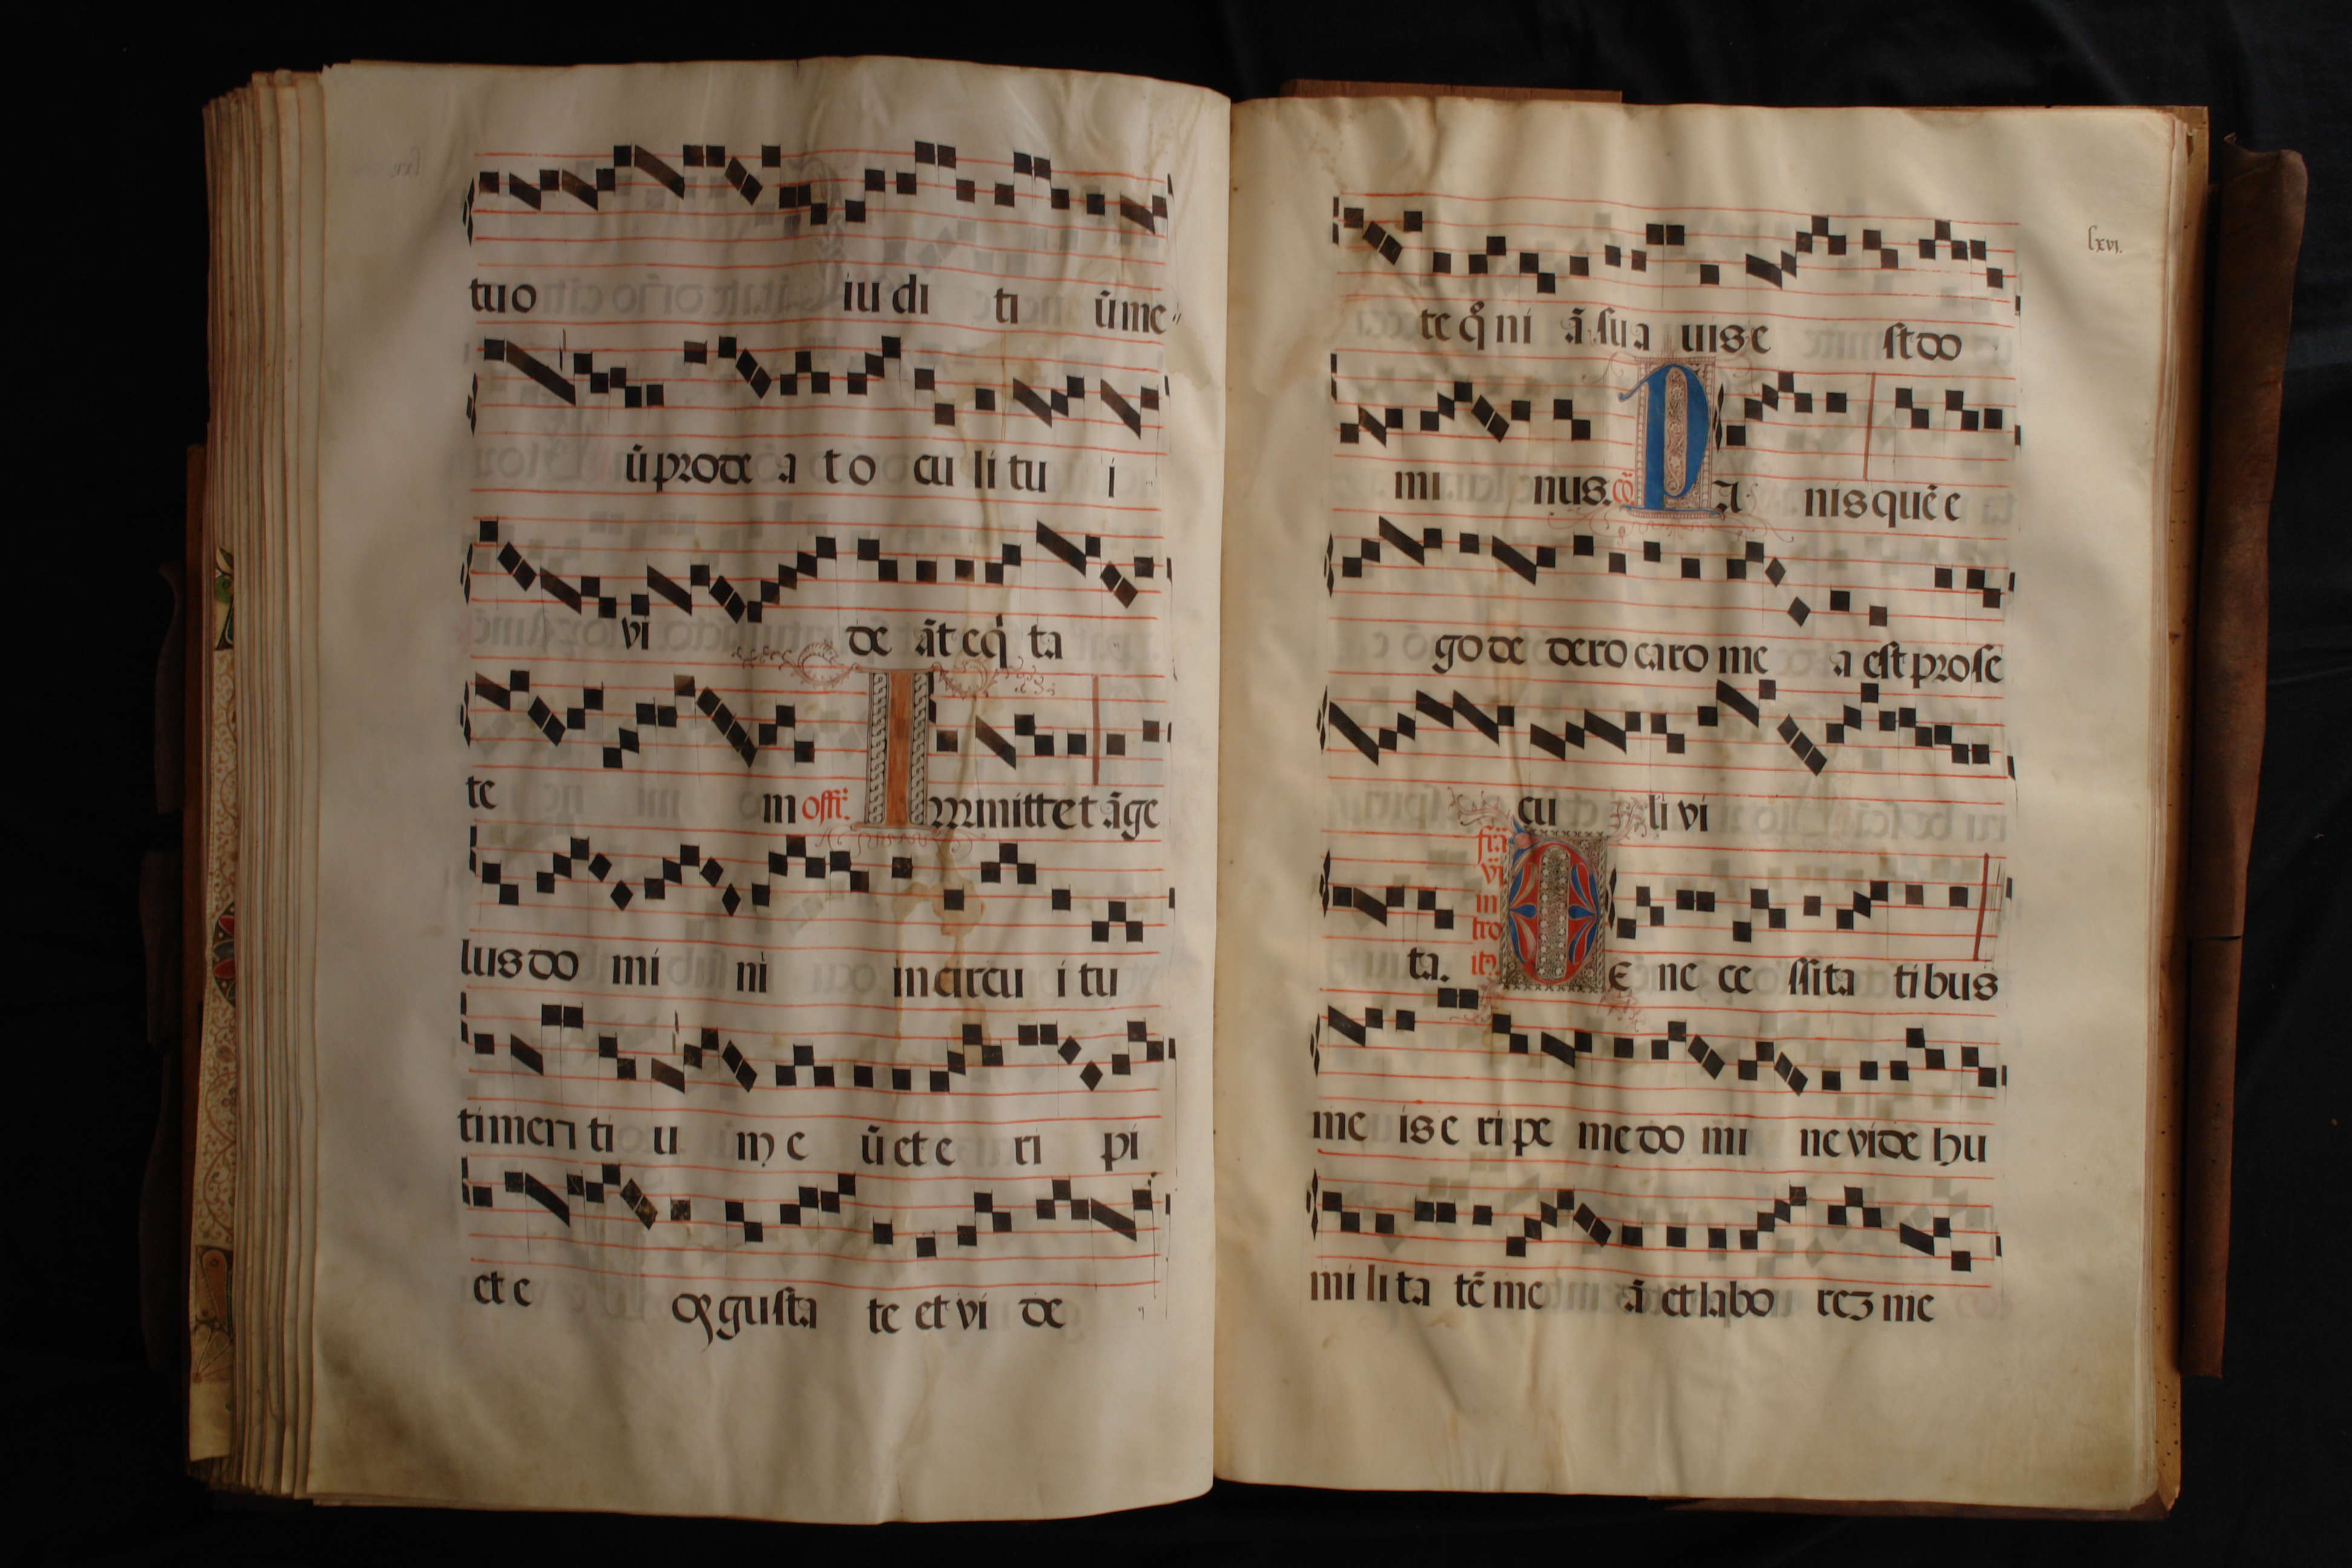 tuo iudi ti ūme
ūprode a t o cu li tu i
vi de āt eq̇ ta
te m offr̄. Immittet āge
lus do mi ni in circu i tu
timen ti u m e ū et e ri pi
et e os gusta te et vi de
lxvi.
te q̊ni ā sua uis e st do
mi nus. cō̄ PA nis quē e
go de dero caro me a est pro se
cu li vi
ta. fr̄a vi in tro it9. DE ne ce ssita tibus
me is e ri pe me do mi ne vide hu
mi li ta tē me ā et labo reʒ me